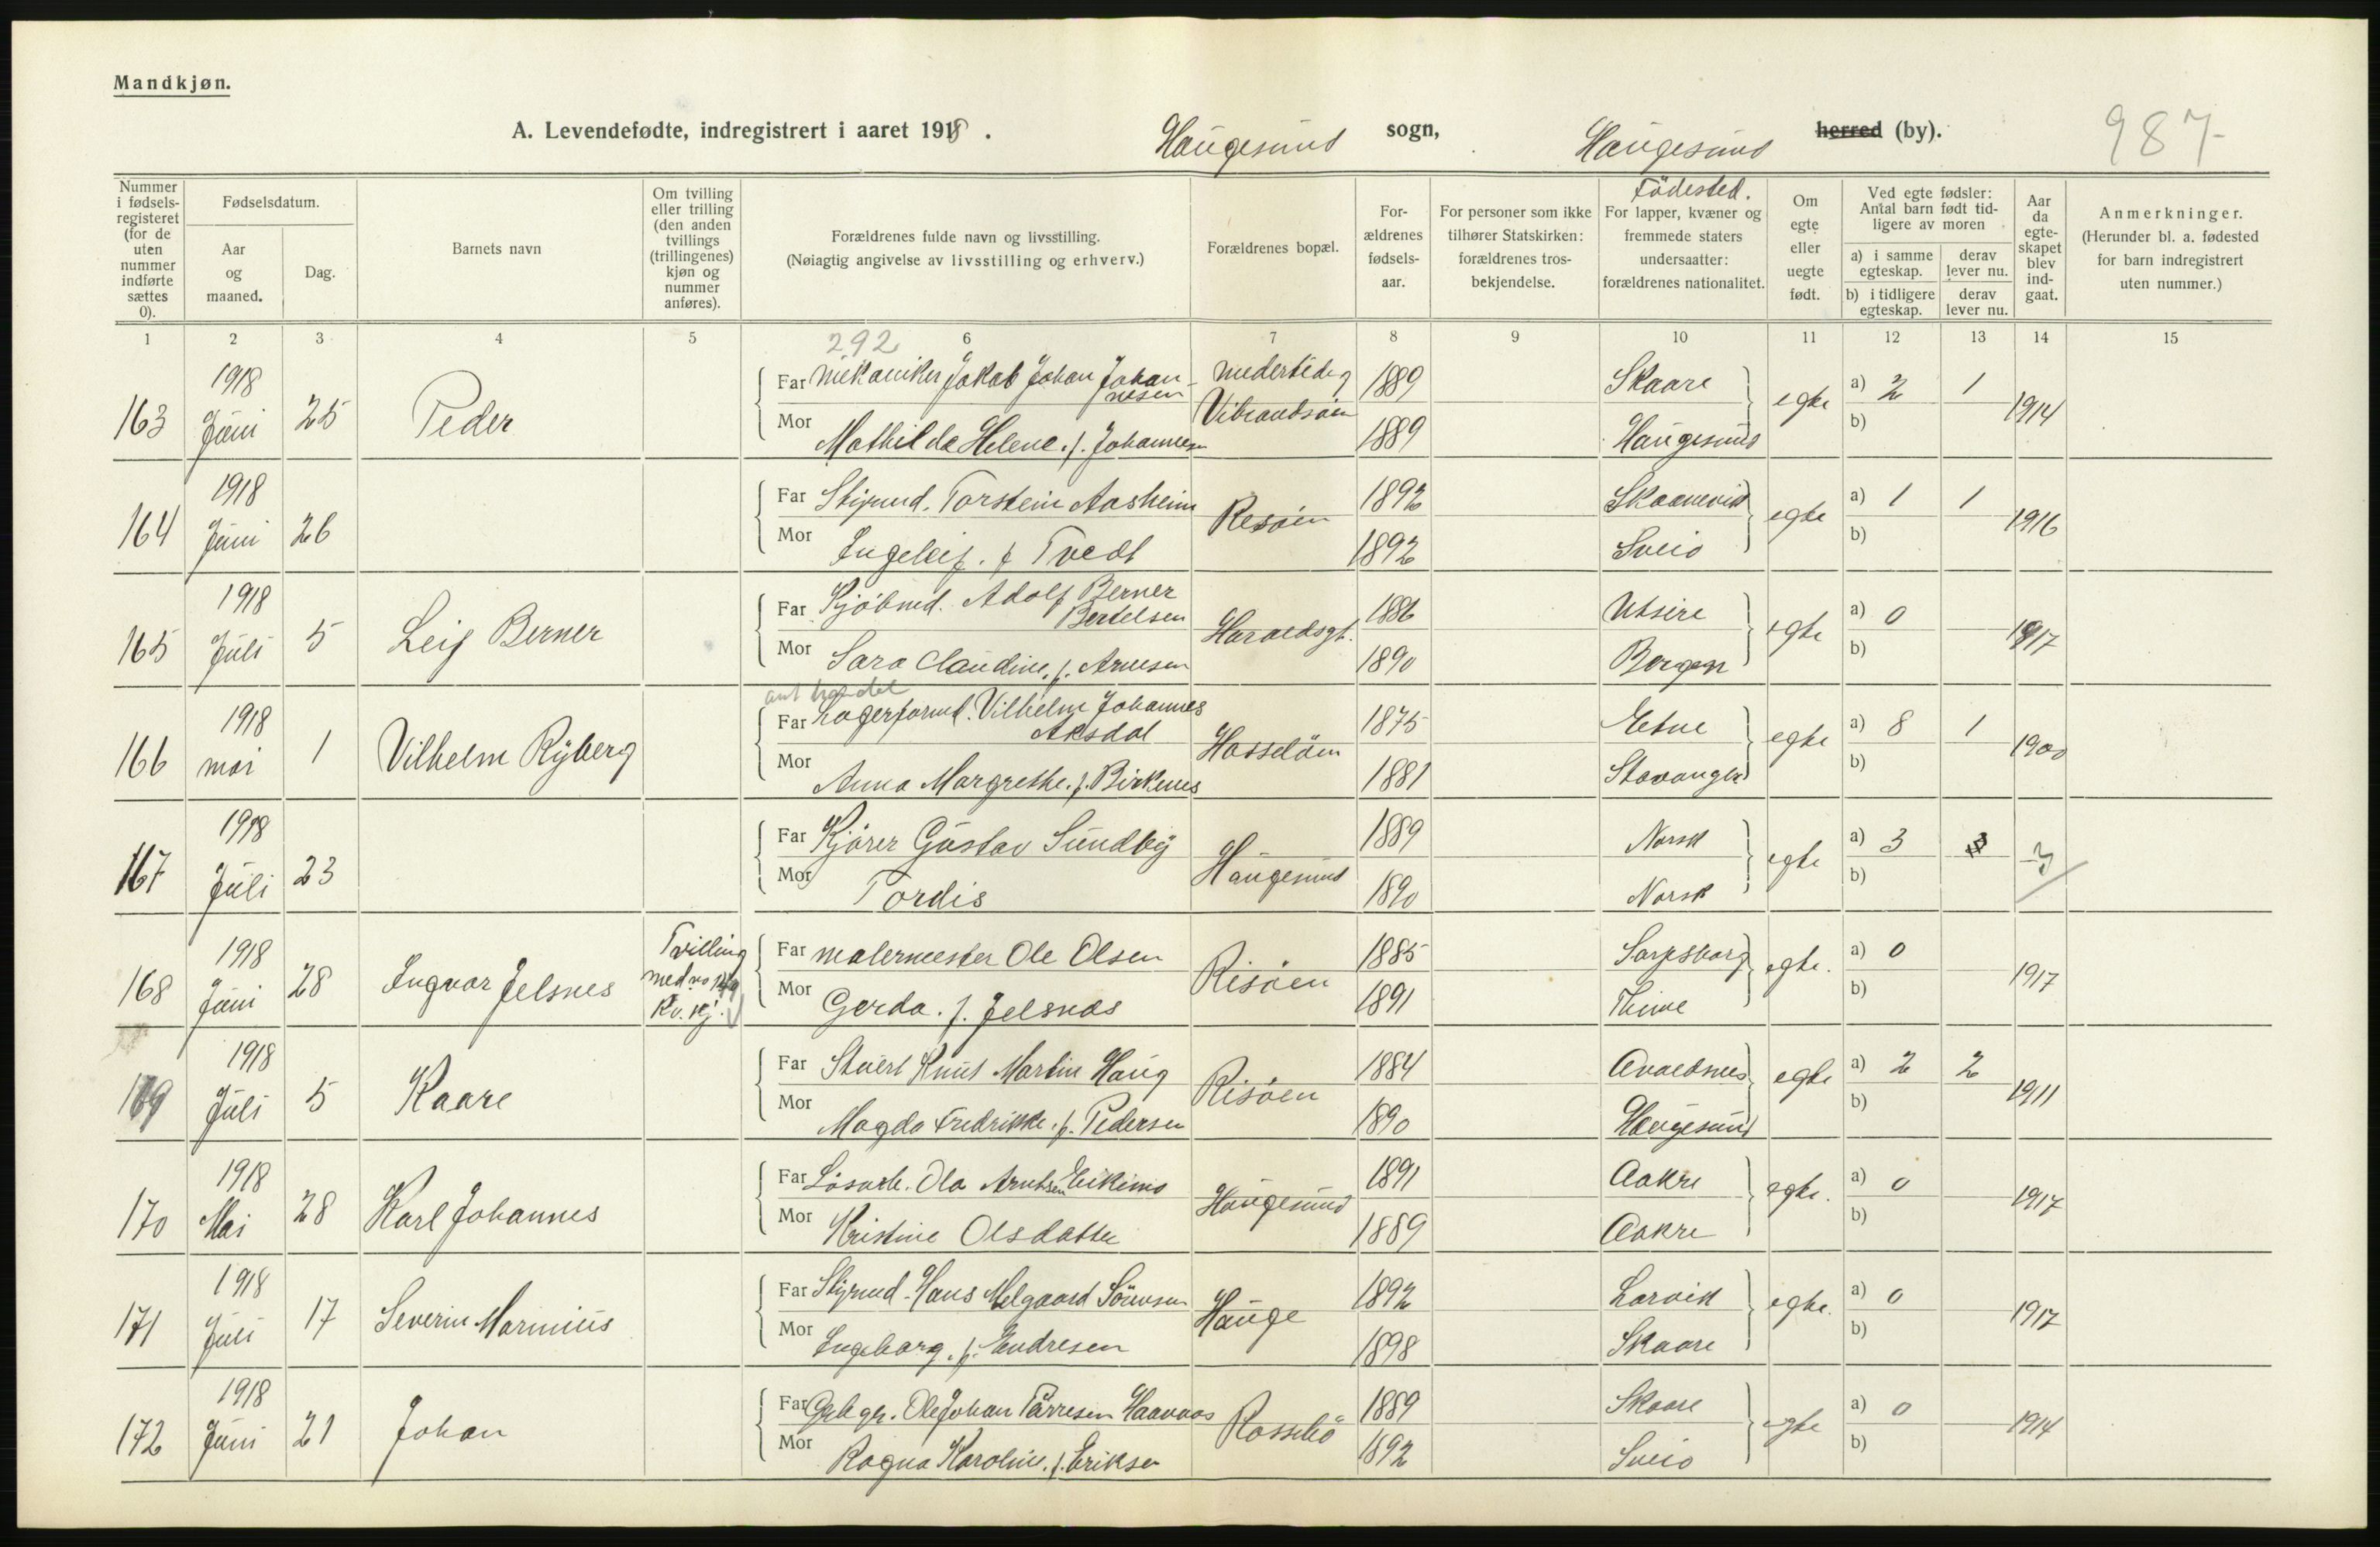 Mandkjøn.
A. Levendefødte, indregistrert i aaret 1918. Haugesund sogn, Haugesund herred (by). 987
Nummer i fødselsregisteret (for de uten nummer indførte sættes 0).
Fødselsdatum.
Aar og maaned.
Dag.
Barnets navn
Om tvilling eller trilling (den anden tvillings (trillingenes) kjøn og nummer anføres).
Forældrenes fulde navn og livsstilling.
(Nøiagtig angivelse av livsstilling og erhverv.)
Forældrenes bopæl.
Forældrenes fødselsaar.
For personer som ikke tilhører Statskirken: forældrenes trosbekjendelse.
Födested.
For lapper, kvæner og fremmede staters undersaatter: forældrenes nationalitet.
Om egte eller uegte født.
Ved egte fødsler: Antal barn født tidligere av moren
a) i samme egteskap. derav lever nu.
b) i tidligere egteskap. derav lever nu.
Aar da egteskapet blev indgaat.
Anmerkninger.
(Herunder bl. a. fødested for barn indregistrert uten nummer.)
1 2 3 4 5 6 7 8 9 10 11 12 13 14 15
292
163 1918 Juni 25 Peder
Far mekaniker Jakob Johan Johannesen 1889 Skaare
Mor Mathilde Helene. f. Johannesen 1889 Haugesund
Vibrandsøen egte a) 2 1 b) 1914
164 1918 Juni 26
Far Styrmd. Torstein Aasheim 1892 Skaanevik
Mor Ingeleif. f Tvedt 1892 Sveio
Risøen egte a) 1 1 b) 1916
165 1918 Juli 5 Leif Berner
Far Kjöbmd. Adolf Berner Bertelsen 1886 Utsire
Mor Sara Claudine. f. Arnesen 1890 Bergen
Haraldsgt. egte a) 0 b) 1917
166 1918 mai 1 Vilhelm Ryberg
Far Lagerformd. Vilhelm Johannes Aksdal 1875 Etne
Mor Anna Margrethe. f. Birkenes 1881 Stavanger
Hasseløen egte a) 8 1 b) 1900
167 1918 Juli 23
Far Kjører Gustav Sundby 1889 Norsk
Mor Tordis 1890 Norsk
Haugesund egte a) 3 3 b)
168 1918 Juni 28 Ingvar Jelsnes Tvilling med no
Kv. kj.
Far malermester Ole Olsen 1885 Sarpsborg
Mor Gerda. f. Jelsnes 1891 Thime
Risøen egte. a) 0 b) 1917
169 1918 Juli 5 Kaare
Far Stuert Knut Martin Haug 1884 Avaldsnes
Mor Magda Fredrikke. f. Pedersen 1890 Haugesund
Risøen egte a) 2 2 b) 1911
170 1918 Mai 28 Karl Johannes
Far Løsarb. Ola Arntsen Eikimo 1891 Aakre
Mor Kristine Olsdatter 1889 Aakre
Haugesund egte. a) 0 b) 1917
171 1918 Juli 17 Severin Marinius
Far Styrmd. Hans Melgaard Sörensen 1892 Larvik
Mor Ingeborg. f. Endresen 1898 Skaare
Hauge egte. a) 0 b) 1917
172 1918 Juni 21 Johan
Far Ole Johan Haavaas 1889 Skaare
Mor Ragna Karoline. f. Eriksen 1892 Sveio
egte a) 0 b) 1914